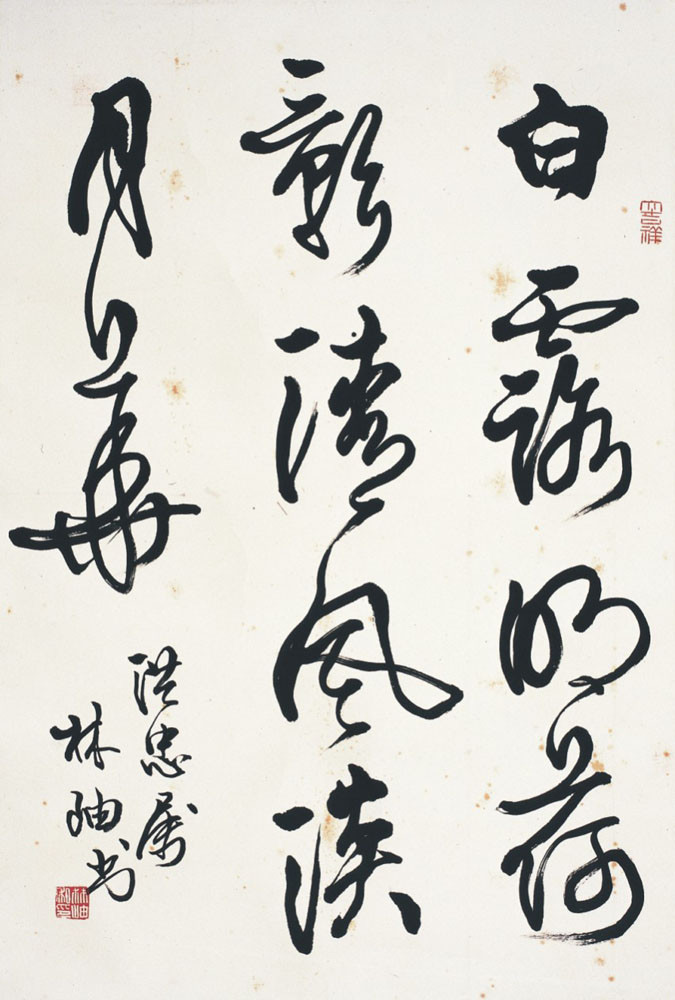 白露明荷
影清风淡
月華
洪忠属
林岫书